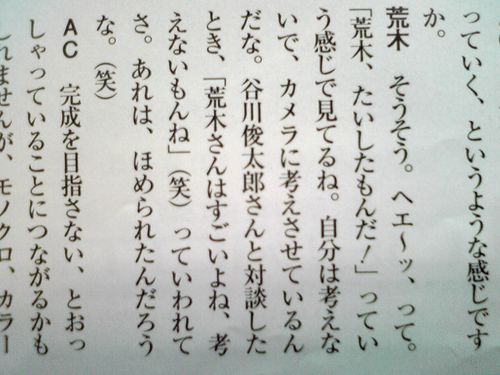 っていく、というような感じです
か。
荒木　そうそう。へエ〜ッ、って。
「荒木、たいしたもんだ！」ってい
う感じで見てるね。自分は考えな
いで、カメラに考えさせているん
だな。谷川俊太郎さんと対談した
とき、「荒木さんはすごいよね、考
えないもんね」（笑）っていわれて
さ。あれは、ほめられたんだろう
な。（笑）
AC　完成を目指さない、とおっ
しゃっていることにつながるかも
しれませんが、モノクロ、カラー